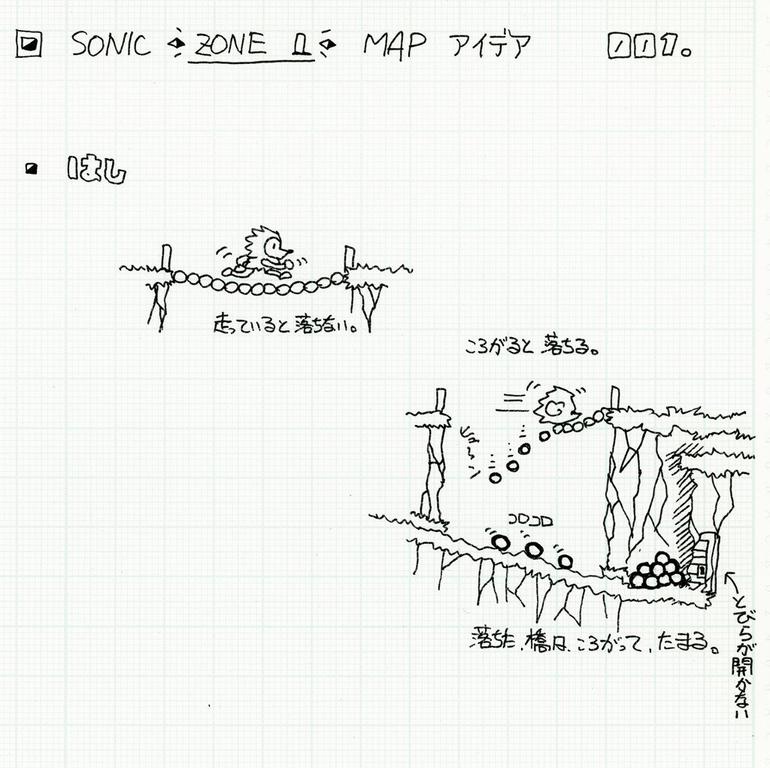 SONIC ZONE 1 MAP アイデア 001。
はし
走っていると落ちない。
ころがると落ちる。
コロコロ
落ちた、橋は、ころがって、たまる。
とびらが開かない